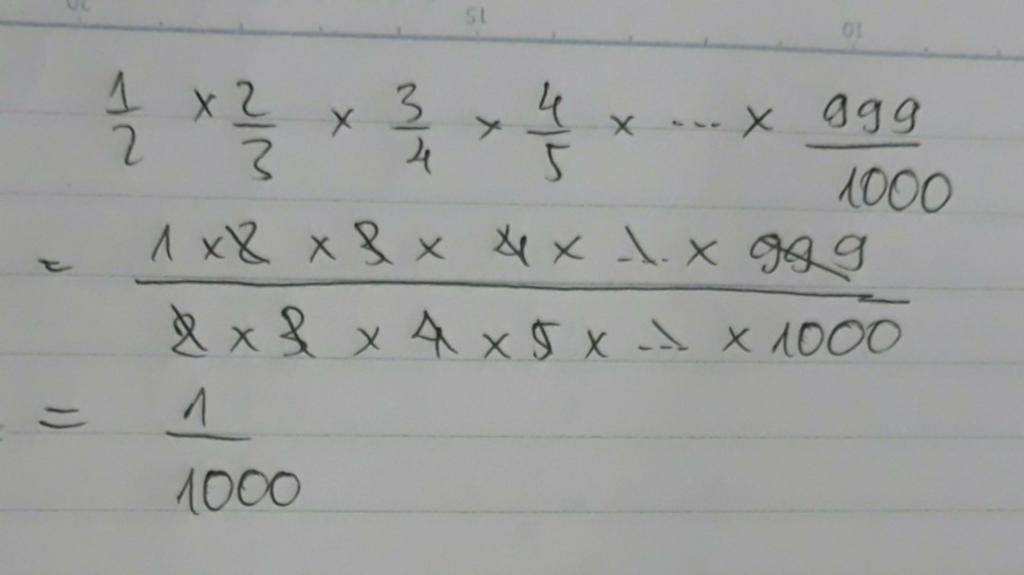 20 15 10
1/2 × 2/3 × 3/4 × 4/5 × ... × 999/1000
= 1 × 2 × 3 × 4 × ... × 999 / 2 × 3 × 4 × 5 × ... × 1000
= 1/1000